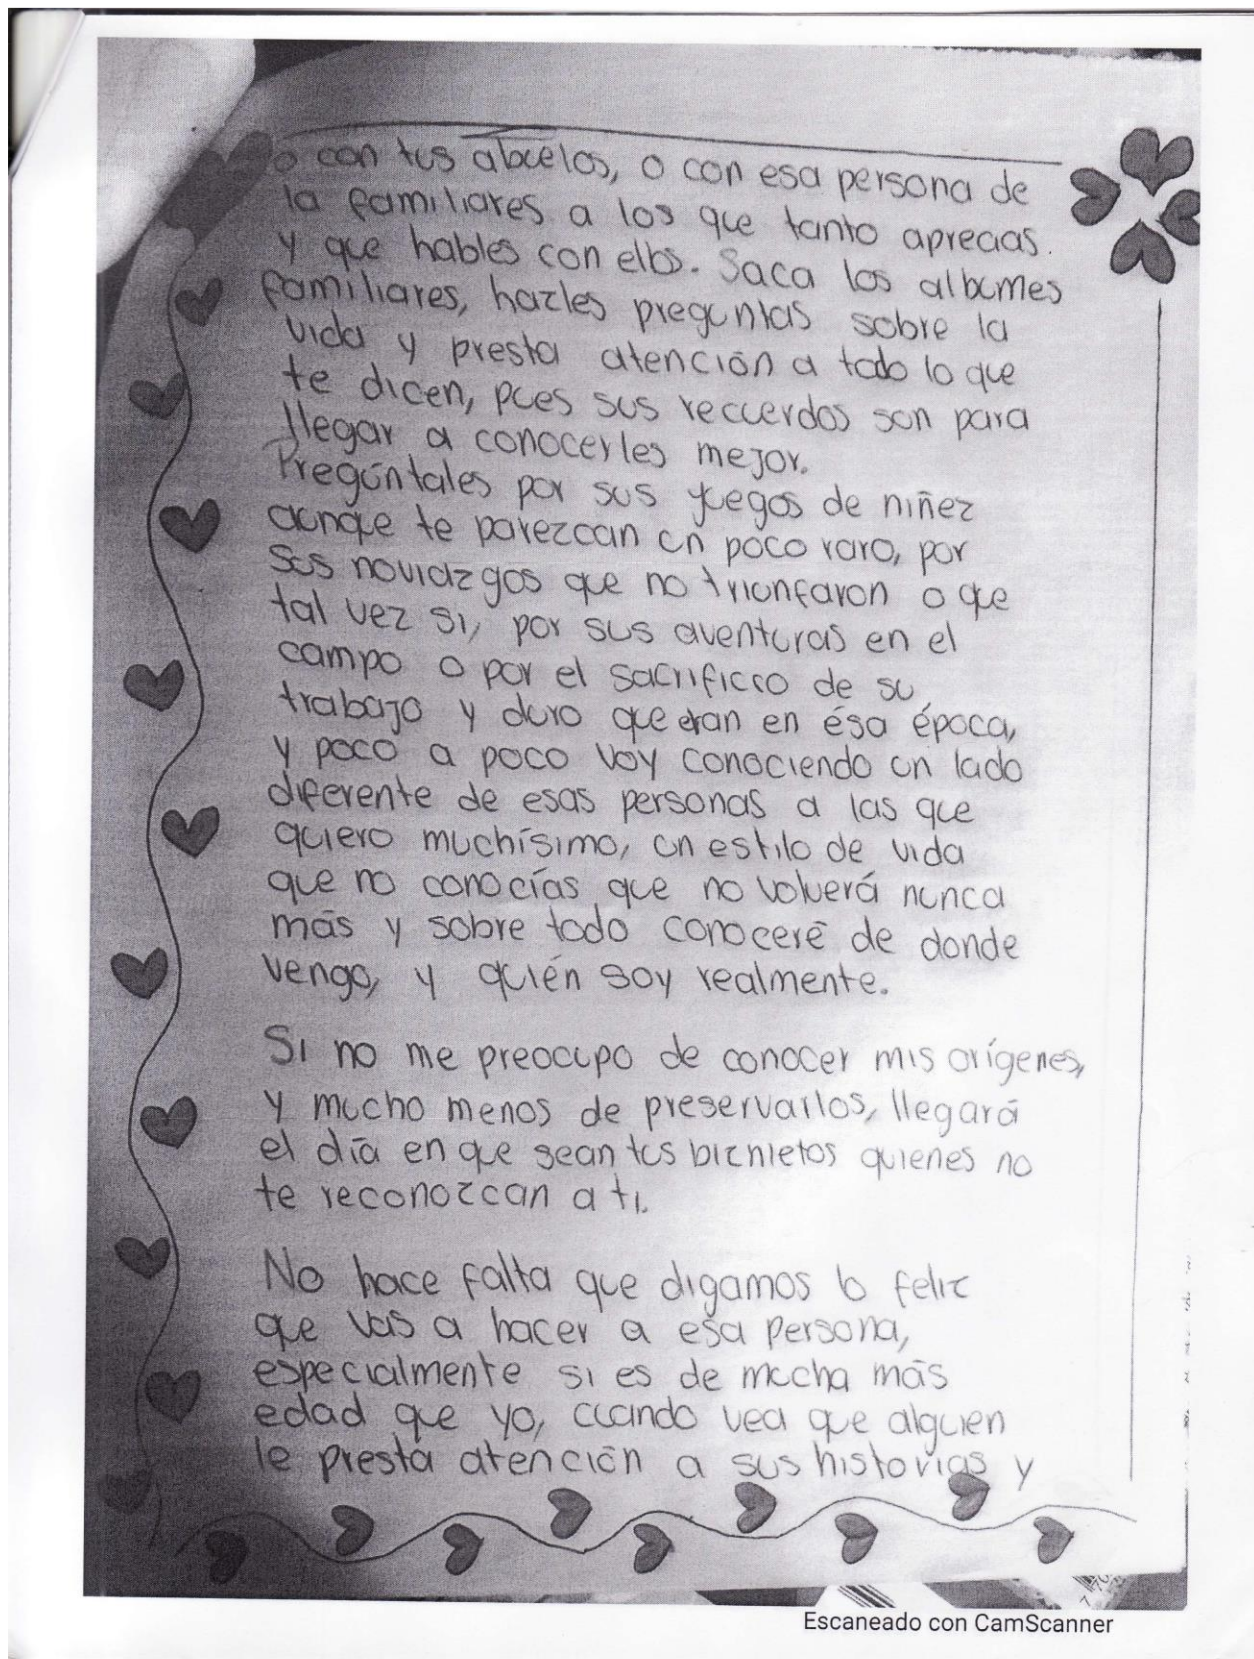 o con tus abuelos, o con esa persona de
la familiares a los que tanto aprecias.
y que hables con ellos. Saca los albumes
familiares, hazles preguntas sobre la
vida y presta atención a todo lo que
te dicen, pues sus recuerdos son para
llegar a conocerles mejor.
Pregúntales por sus juegos de niñez
aunque te parezcan un poco raro, por
sus noviazgos que no triunfaron o que
tal vez si, por sus aventuras en el
campo o por el sacrificio de su
trabajo y duro que eran en ésa época,
y poco a poco voy conociendo un lado
diferente de esas personas a las que
quiero muchísimo, un estilo de vida
que no conocías que no volverá nunca
más y sobre todo conoceré de donde
vengo, y quién soy realmente.
Si no me preocupo de conocer mis orígenes,
y mucho menos de preservarlos, llegará
el día en que sean tus biznietos quienes no
te reconozcan a ti.
No hace falta que digamos lo feliz
que vas a hacer a esa persona,
especialmente si es de mucha más
edad que yo, cuando vea que alguien
le presta atención a sus historias y
Escaneado con CamScanner